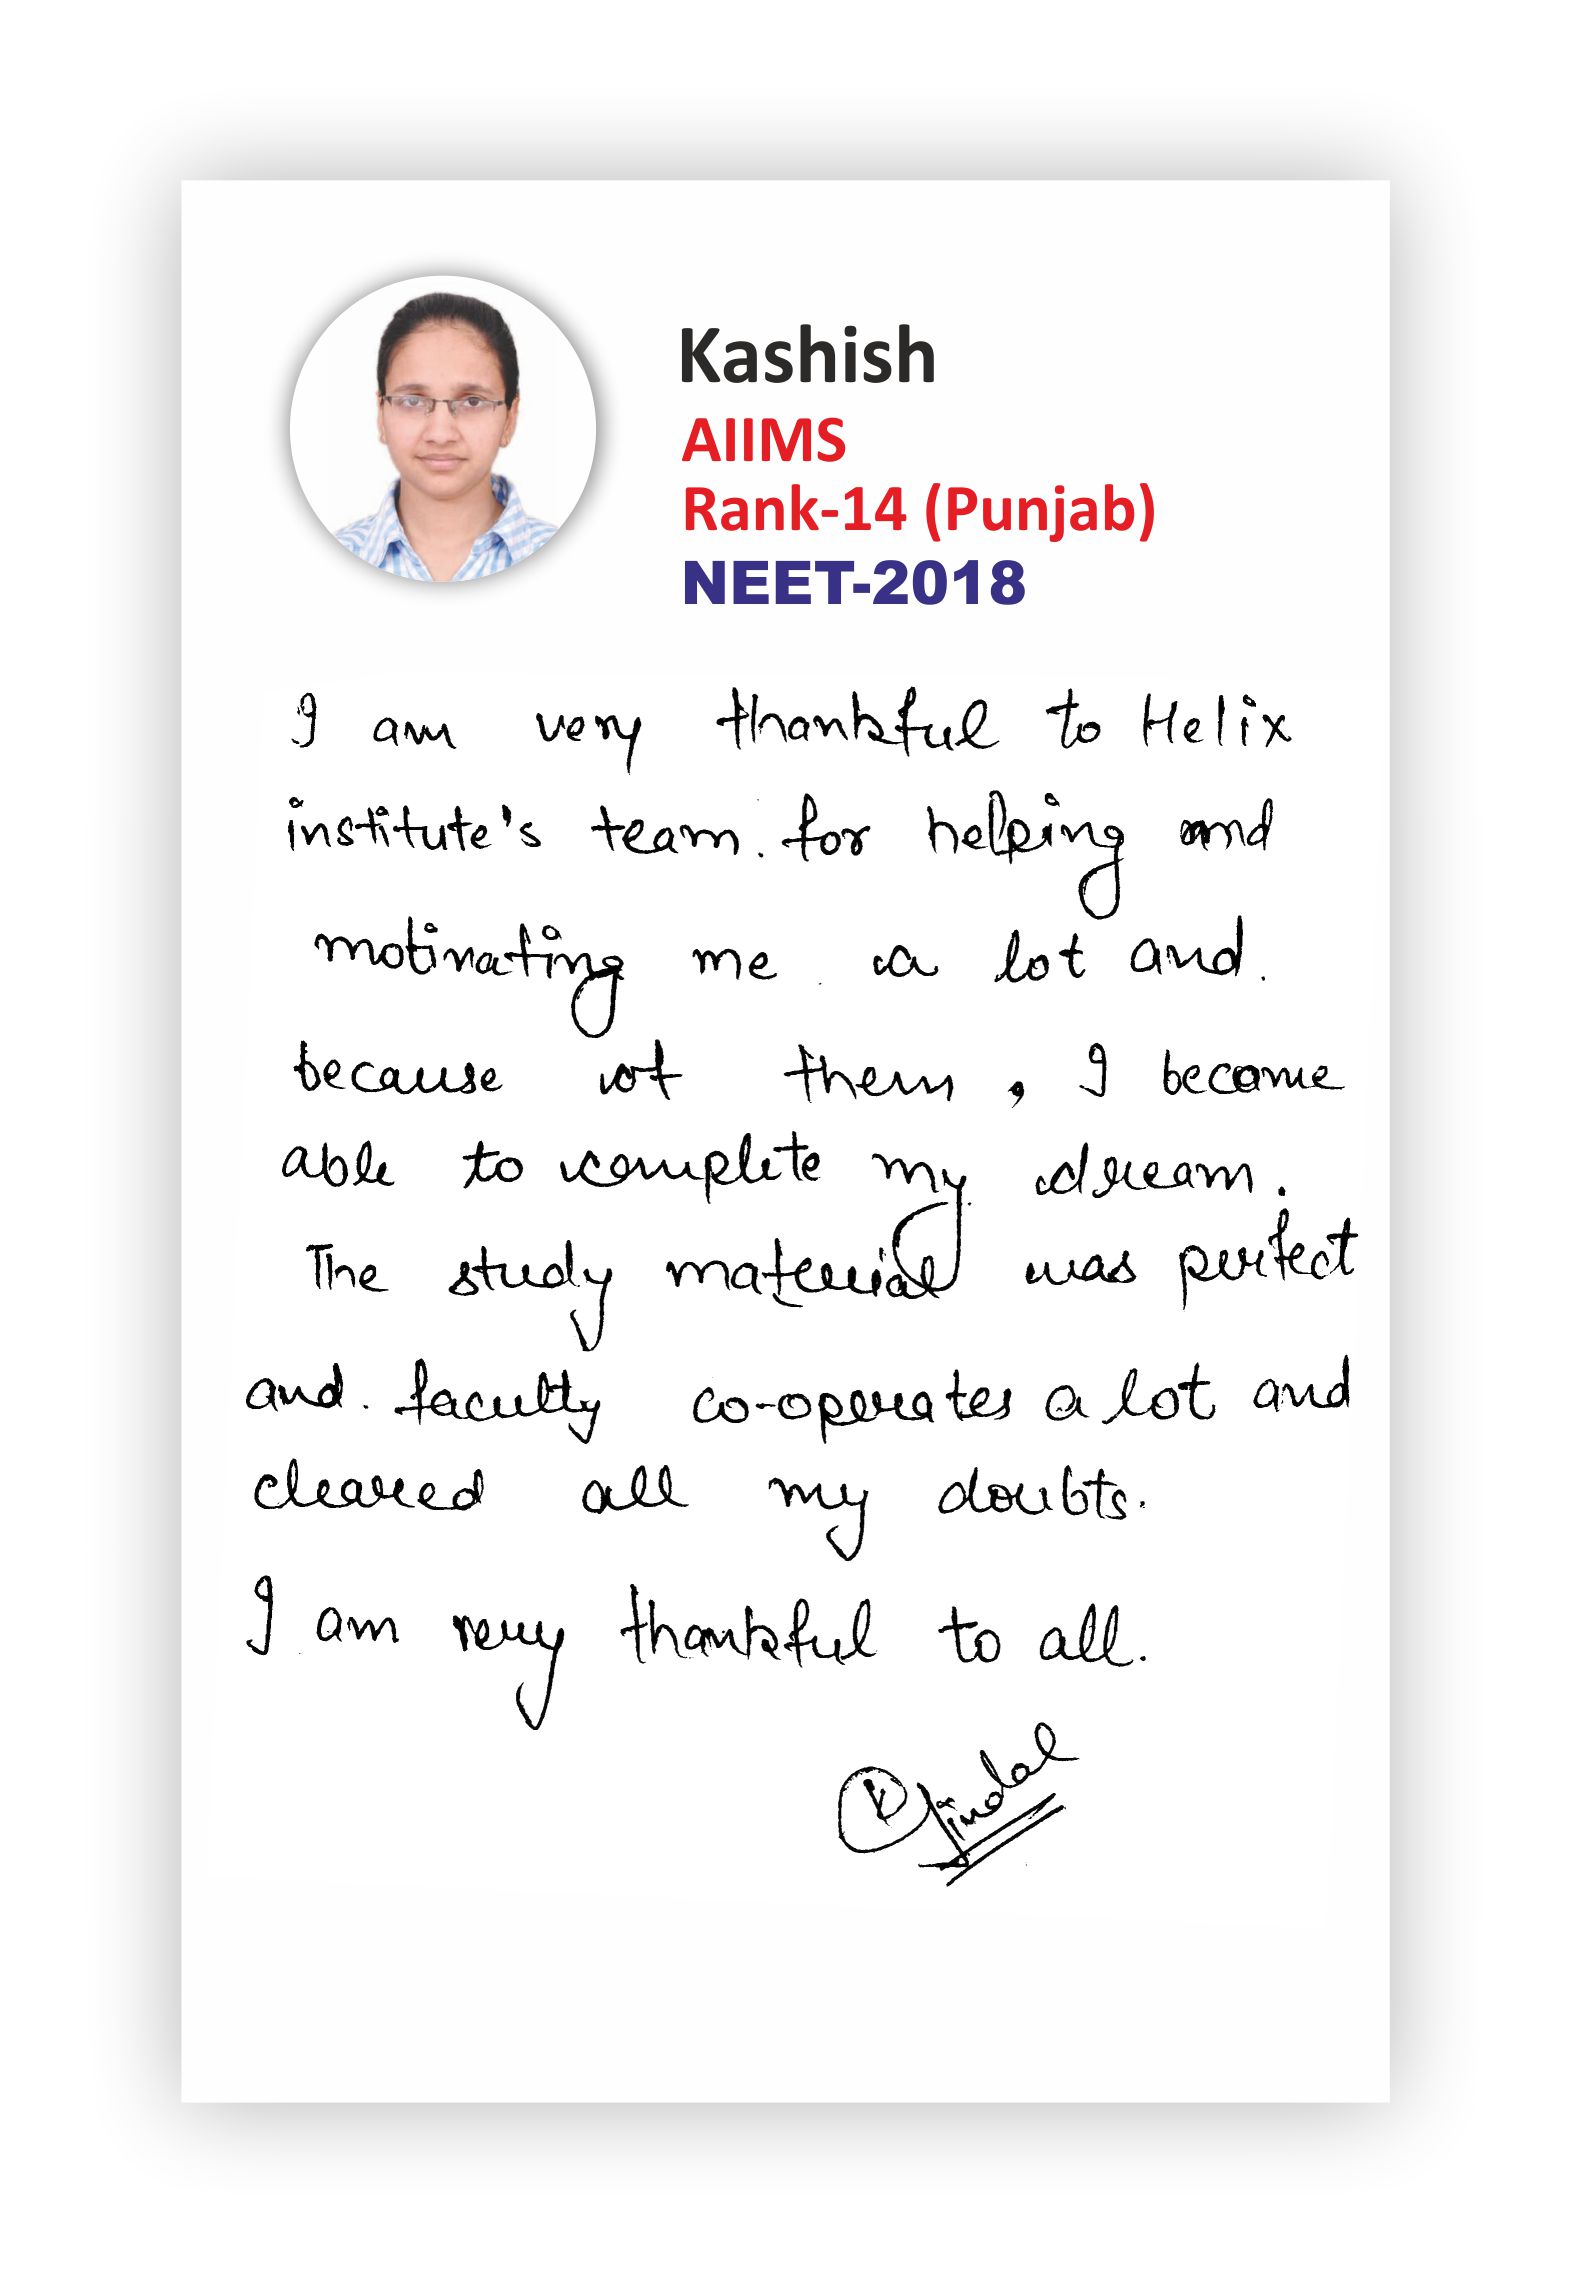 Kashish
AIIMS
Rank-14 (Punjab)
NEET-2018
I am very thankful to Helix
institute's team. for helping and
motivating me a lot and.
because of them, I become
able to complete my dream.
The study material was perfect
and. faculty co-operates a lot and
cleared all my doubts.
I am very thankful to all.
K Jindal